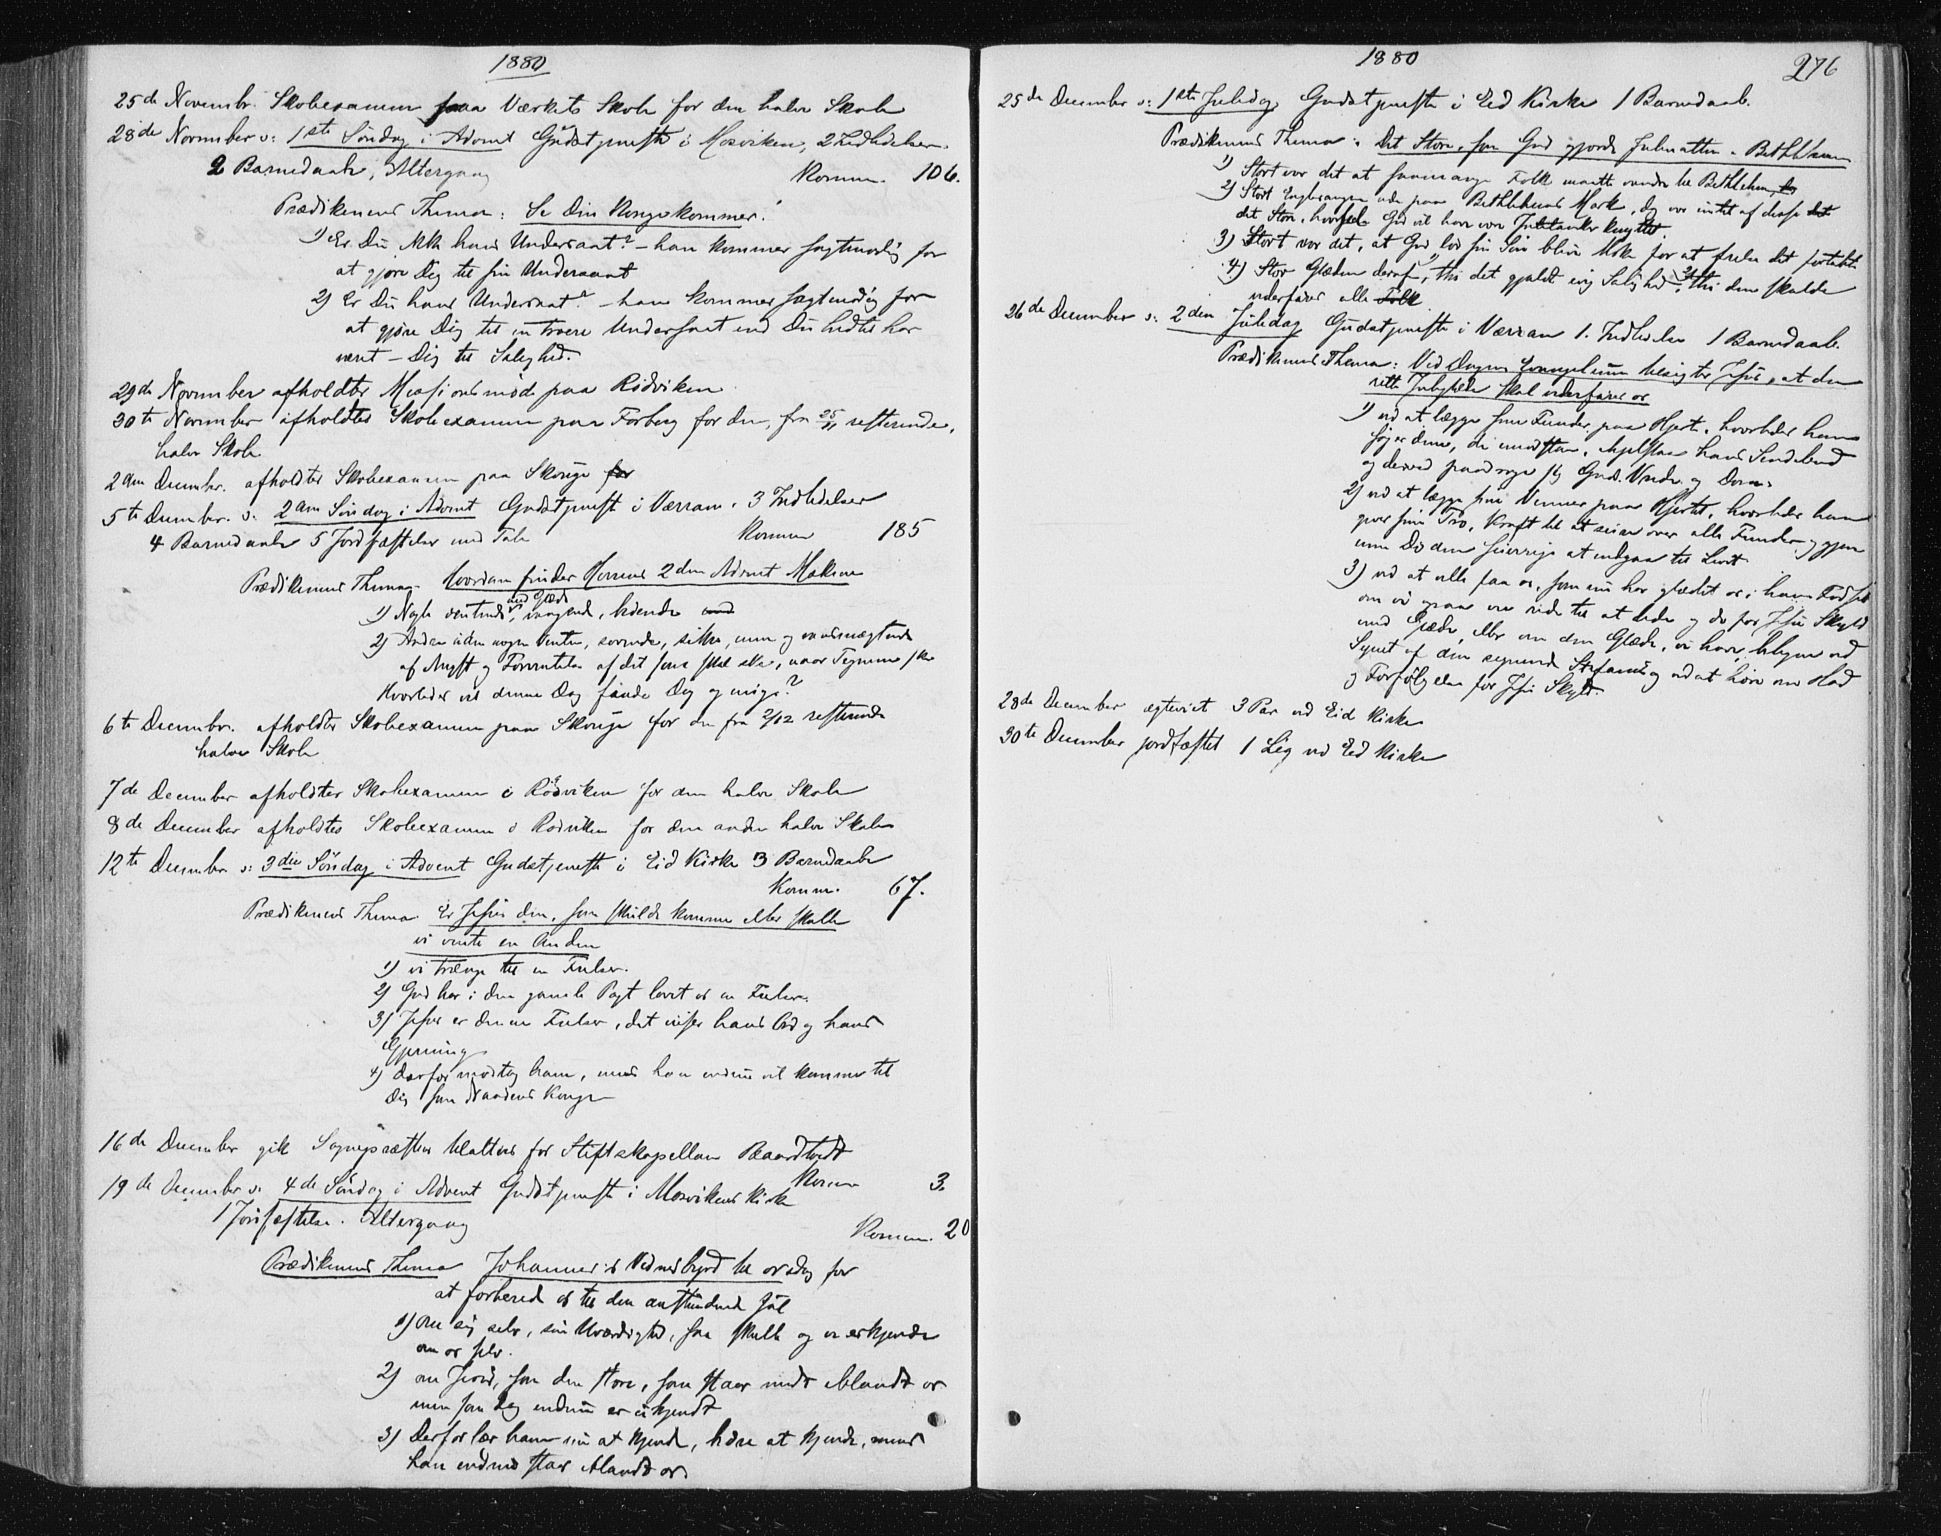 1880
25de Novembr. Skoleexamen paa Værkets Skole for den halve Skole
28de November s: 1ste Søndag i Advent Gudstjeneste i Mosviken, 2 Indledelser.
2 Barnedaab, Altergang Komm. 106.
Prædikenens Thema: Se Din Konge kommer!
1) Er Du ikke hans Undersaat? – han kommer sagtmodig for
at gjøre Dig til sin Undersaat
2) Er Du hans Undersaat? – han kommer sagtmodig for
at gjøre Dig til en troere Undersaat end Du hidtil har
været – Dig til Salighed.
29de November afholdtes Missionsmøde paa Rødviken
30te November afholdtes Skoleexamen paa Forberg for den, fra 25/11 resterende,
halve Skole
2den Decembr. afholdtes Skoleexamen paa Skavige for
5te Decembr. s: 2den Søndag i Advent Gudstjenest i Værran. 3 Indledelser
4 Barnedaab 5 Jordfæstelser med Tale Komm 185
Prædikenens Thema Hvordan finder Herrens 2den Advent Mskene
1) Nogle ventende med Glæde, vaagende, bedende
2) Andre uden nogen Venten, sovende, sikre, men og vansmægtende
af Angst og Forventelse af det som skal ske, naar Tegnene ske
Hvorledes vil denne Dag finde Dig og mig?
6te Decembr. afholdtes Skoleexamen paa Skavige for den fra 2/12 resterende
halve Skole
7de December afholdtes Skoleexamen i Rødviken for den halve Skole
8de December afholdtes Skoleexamen i Rødviken for den anden halve Skole
12te December s: 3die Søndag i Advent Gudstjeneste i Eid Kirke 3 Barnedaab
Komm. 67.
Prædikenens Thema Er Jesus den, som skulde komme eller skulle
vi vente en Anden
1) vi trænge til en Frelser.
2) Gud har i den gamle Pagt lovet os en Frelser.
3) Jesus er denne Frelser, det viser hans Ord og hans
Gjerning
4) derfor modtag ham, mens han endnu vil komme til
Dig som Naadens Konge
16de December gik Sognepræsten til alters for Stiftskapellan Baardtvedt
Komm 3.
19de December s: 4de Søndag i Advent Gudstjeneste i Mosvikens Kirke
1 Jordfæstelse. Altergang Komm. 20
Prædikenens Thema Johannes's Vidnesbyrd til os idag for
at forberede os til den anstundende Jul
1) om sig selv, sin Uværdighed, saa skulle og vi erkjende
om os selv.
2) om Jesus, som den store, som staar midt iblandt os
men som dog endnu er ukjendt
3) Derfor lær ham nu at kjende, bedre at kjende, mens
han endnu staar iblandt os.
1880
276
25de December s: 1ste Juledag Gudstjeneste i Eid Kirke 1 Barnedaab.
Prædikenens Thema: Det Store, som Gud gjorde Julenatten i Bethlehem
1) Stort var det at saamange Folk maatte vandre til Bethlehem,
2) Stort Englesangen ude paa Bethlehems Mark, dog var intet af disse
det Store, hvortil Gud vil have vore Juletanker knyttet.
3) Stort var det, at Gud lod sin Søn blive Mske for at frelse det fortabte
4) Stor Glæden deraf, 1) thi det gjaldt evig Salighed, 2) thi den skulde
vederfares alle Folk
26de December s: 2den Juledag Gudstjeneste i Værran 1. Indledelse 1 Barnedaab.
Prædikenens Thema: Ved Dagens Evangelium besigter Jesus, at den
rette Juleglæde skal vederfares os
1) ved at lægge sine Fiender paa Hjerte, hvorledes han
søger dem, de imodstaa, ihjelslaa hans Sendebud
og derved paadrage sig Guds Vrede og Dom.
2) ved at lægge sine Venner paa Hjertet, hvorledes han
giver sine Tro, Kraft til at seire over alle Fiender og gjen
nem Død den seierrige at indgaa til Livet
3) ved at ville faa os, som nu har glædet os i hans Fødsel
om vi ogsaa ere rede til at lide og dø for Jesu Skyld
med Glæde, eller om den Glæde, vi have, blegne ved
Synet af den segnende Stefanus og ved at høre om Had
og Forfølgelse for Jesu Skyld.
28de December ægteviet 3 Par ved Eid Kirke
30te December jordfæstet 1 Lig ved Eid Kirke